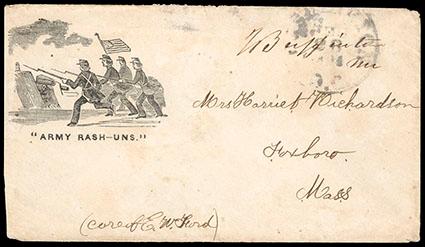 "ARMY RASH-UNS."
Mrs Harriet Richardson
Foxboro.
Mass
(care of E. W. Ford)